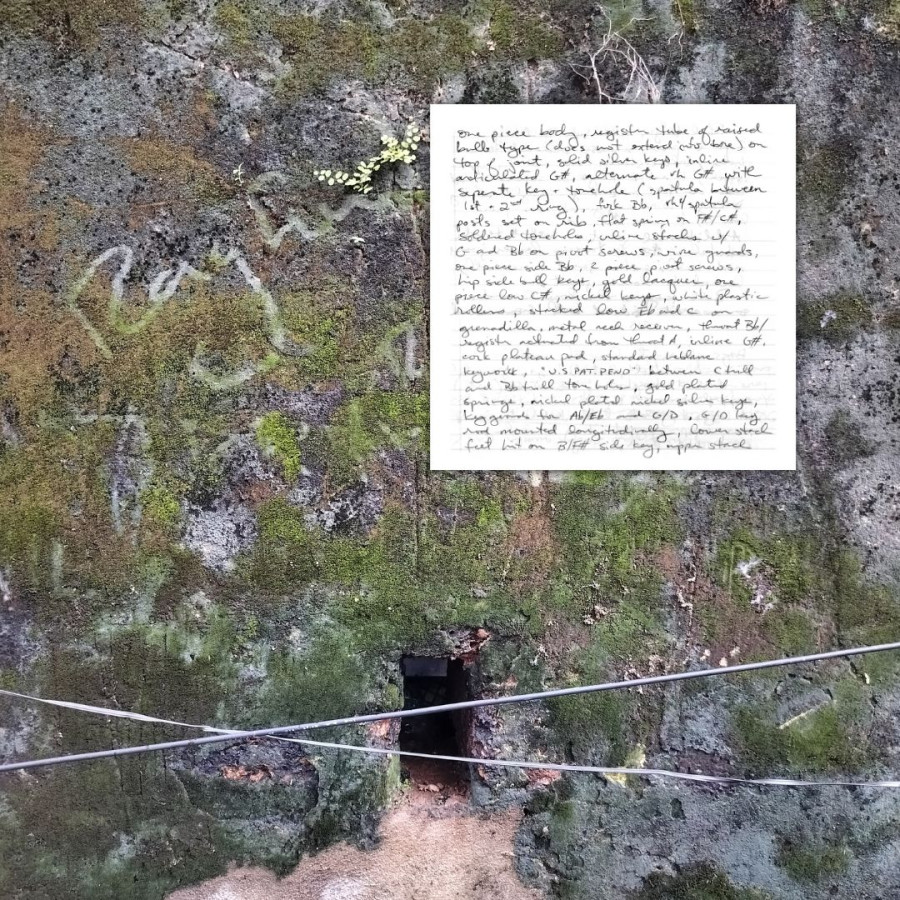 one piece body, register tube of raised
bulb type (does not extend into bore) on
top of joint, solid silver keys, inline
articulated G#, alternate rh G# with
seperate key + tonehole (spatula between
1st + 2nd rings), fork Bb, rh4 spatula
posts set on rib, flat spring on F#/C#,
soldered toneholes, inline stacks w/
G and Bb on pivot screws, wire guards,
one piece side Bb, 2 piece pivot screws,
hip side bell keys, gold lacquer, one
piece low C#, nickel keys, white plastic
rollers, stacked low Eb and C on
grenadilla, metal neck receiver, throat Bb/
register actuated from throat A, inline G#,
cork plateau pad, standard Leblanc
keywork, "U.S. PAT. PEND" between C bell
and Bb bell tone holes, gold plated
springs, nickel plated nickel silver keys,
key guards for Ab/Eb and G/D, G/D key
rod mounted longitudinally, lower stack
feel bit on B/F# side key, upper stack
Ray